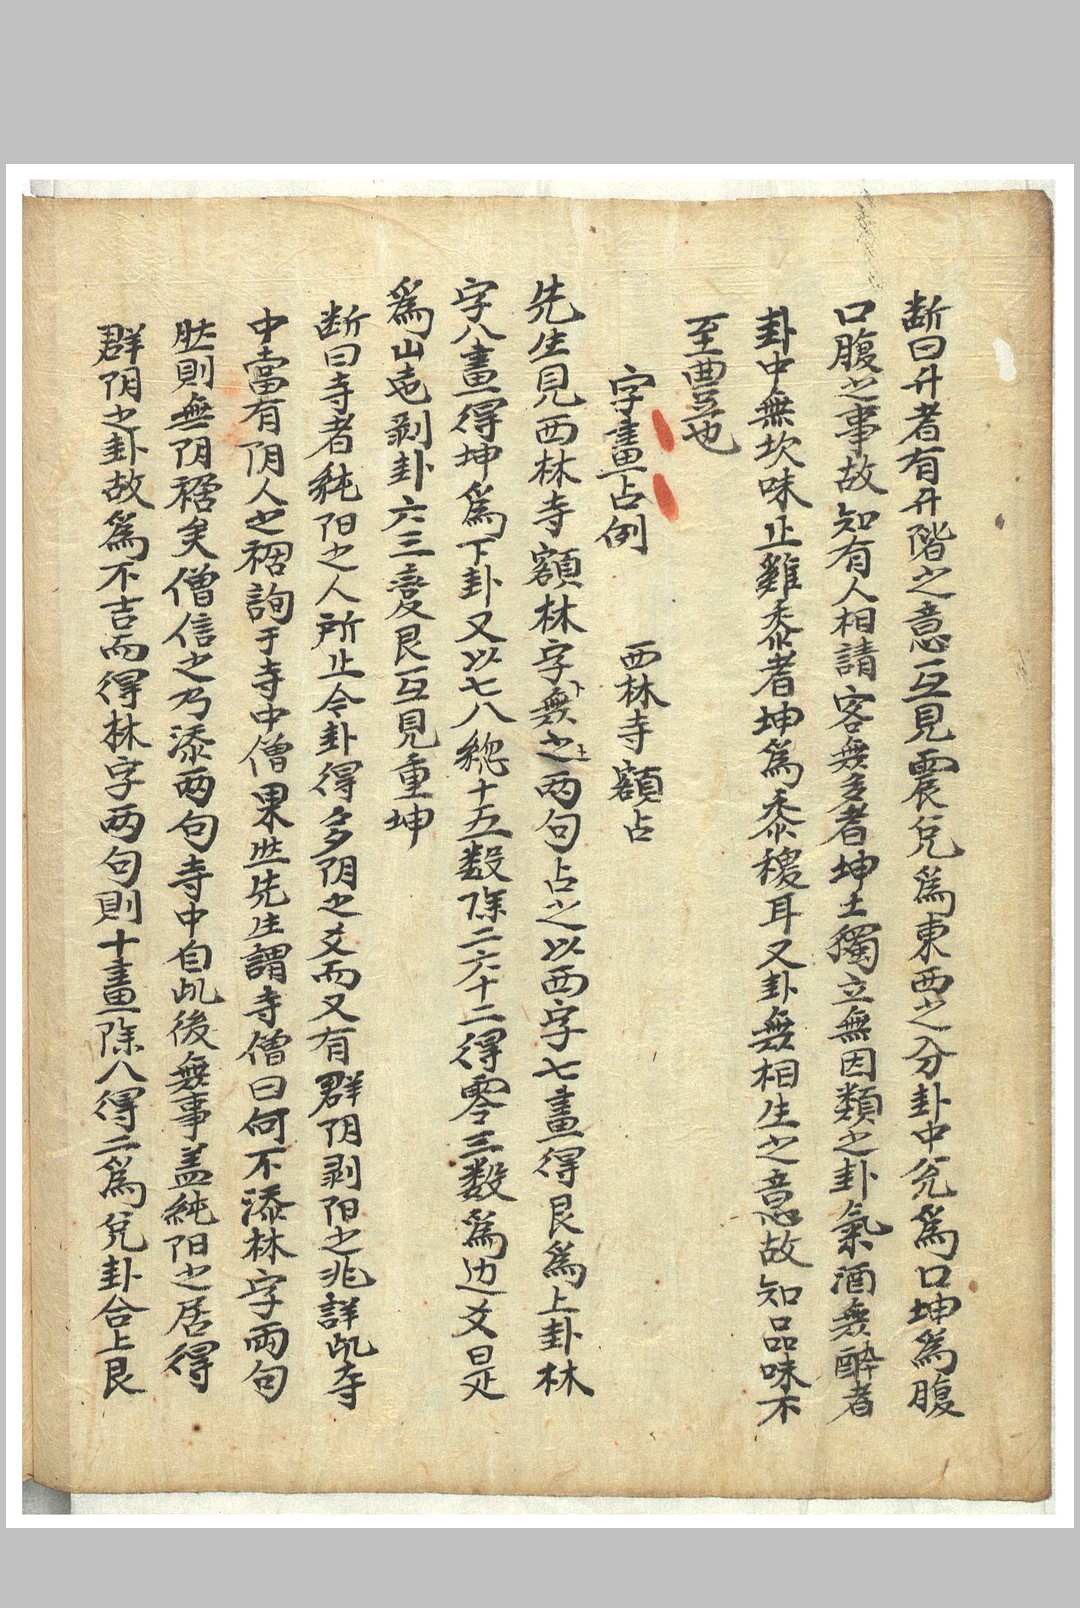 断曰升者有升階之意互見震兌爲東西之分卦中兌爲口坤爲腹
口腹之事故知有人相請客無多者坤土獨立無因類之卦氣酒無醉者
卦中無坎味止雞黍者坤爲黍稷耳又卦無相生之意故知品味不
至豊也
字畫占例 西林寺額占
先生見西林寺額林字無之両句占之以西字七畫得艮爲上卦林
字八畫得坤爲下卦又以七八總十五数除二六十二得零三数爲边爻是
爲山地剥卦六三変艮互見重坤
断曰寺者純阳之人所止今卦得多阴之爻而又有群阴剥阳之兆詳此寺
中當有阴人之裙詢于寺中僧果然先生謂寺僧曰何不添林字両句
然則無阴裙矣僧信之乃添両句寺中自此後無事盖純阳之居得
群阴之卦故爲不吉而得林字両句則十畫除八得二爲兌卦合上艮